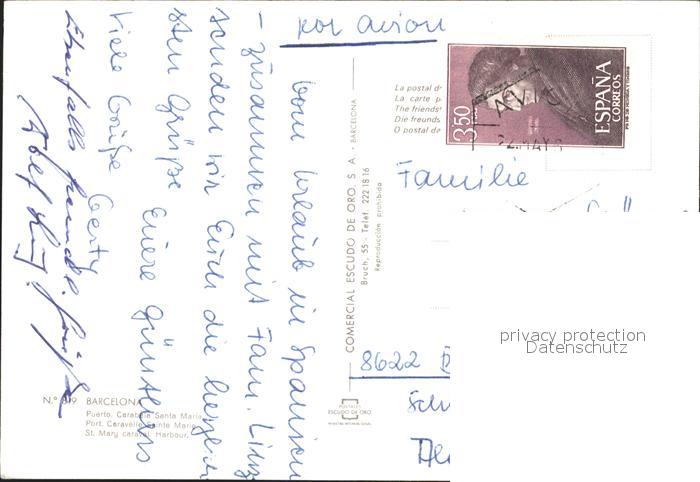 por avion
Vom Urlaub in Spanien
- zusammen mit Fam. Linz
senden wir Euch die herzlich
sten Grüße Eure Günthers
Viele Grüße Gerty
Ebenfalls freundl. Grüße
COMERCIAL ESCUDO DE ORO, S. A. - BARCELONA
Bruch, 55 - Telef. 222 18 16
Reproducción prohibida
La postal d
La carte p
The friends
Die freunds
O postal de
3,50
ESPAÑA
CORREOS
AVIS
Familie
8622
N.° 819 BARCELONA
Puerto. Carabela Santa María
Port. Caravelle Sainte Marie
St. Mary caravel. Harbour.
POSTALES
ESCUDO DE ORO
privacy protection
Datenschutz